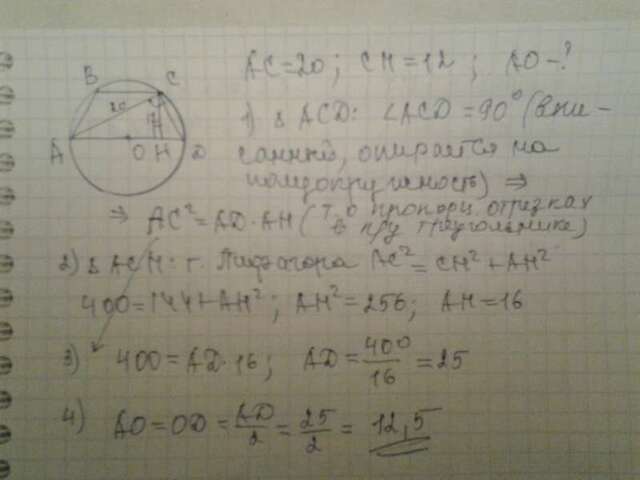 AC=20; CH=12; AO-?
B C
20 12
A O H D
1) Δ ACD: ∠ACD=90° (впи-
санный, опирается на
полуокружность) ⇒
⇒ AC²=AD·AH (т. о пропорц. отрезках
в пр/у треугольнике)
2) Δ ACH: т. Пифагора AC²=CH²+AH²
400=144+AH²; AH²=256; AH=16
3) 400=AD·16; AD=400/16=25
4) AO=OD=AD/2=25/2=12,5